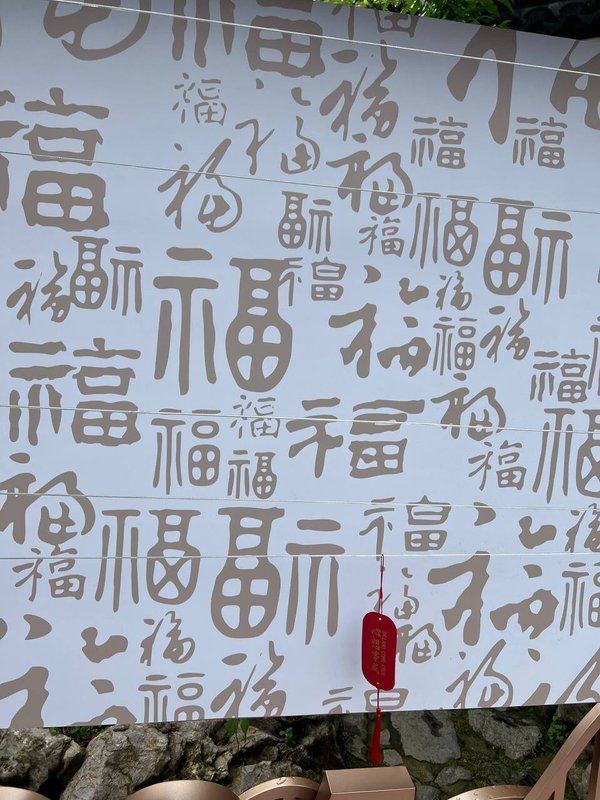 福 福 福 福
福 福 福 福 福 福
福 福 福 福 福 福
福 福 福 福 福
福 福 福 福 福 福
福 福 福 福 福
福 福 福 福 福 福
福 福 福 福 福 福
福 福 福 福 福 福
福 福 福 福 福
DREAMS COME TRUE